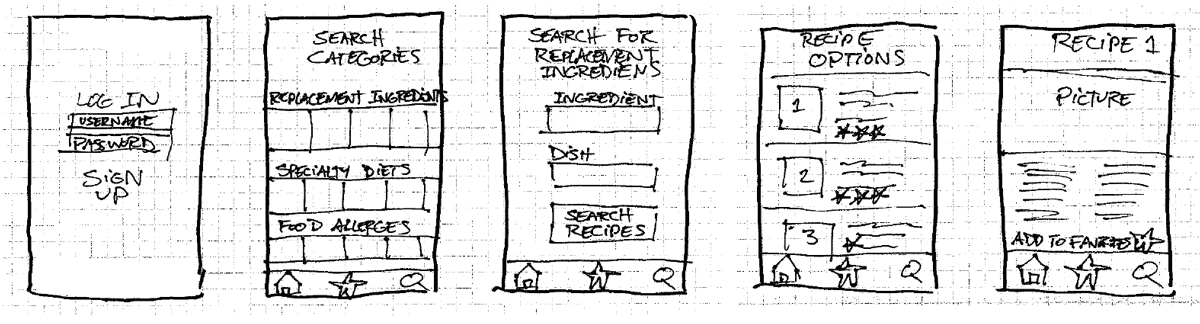 LOG IN
USERNAME
PASSWORD
SIGN
UP
SEARCH
CATEGORIES
REPLACEMENT INGREDIENTS
SPECIALTY DIETS
FOOD ALLERGES
SEARCH FOR
REPLACEMENT
INGREDIENS
INGREDIENT
DISH
SEARCH
RECIPES
RECIPE
OPTIONS
1
2
3
RECIPE 1
PICTURE
ADD TO FAVORITES